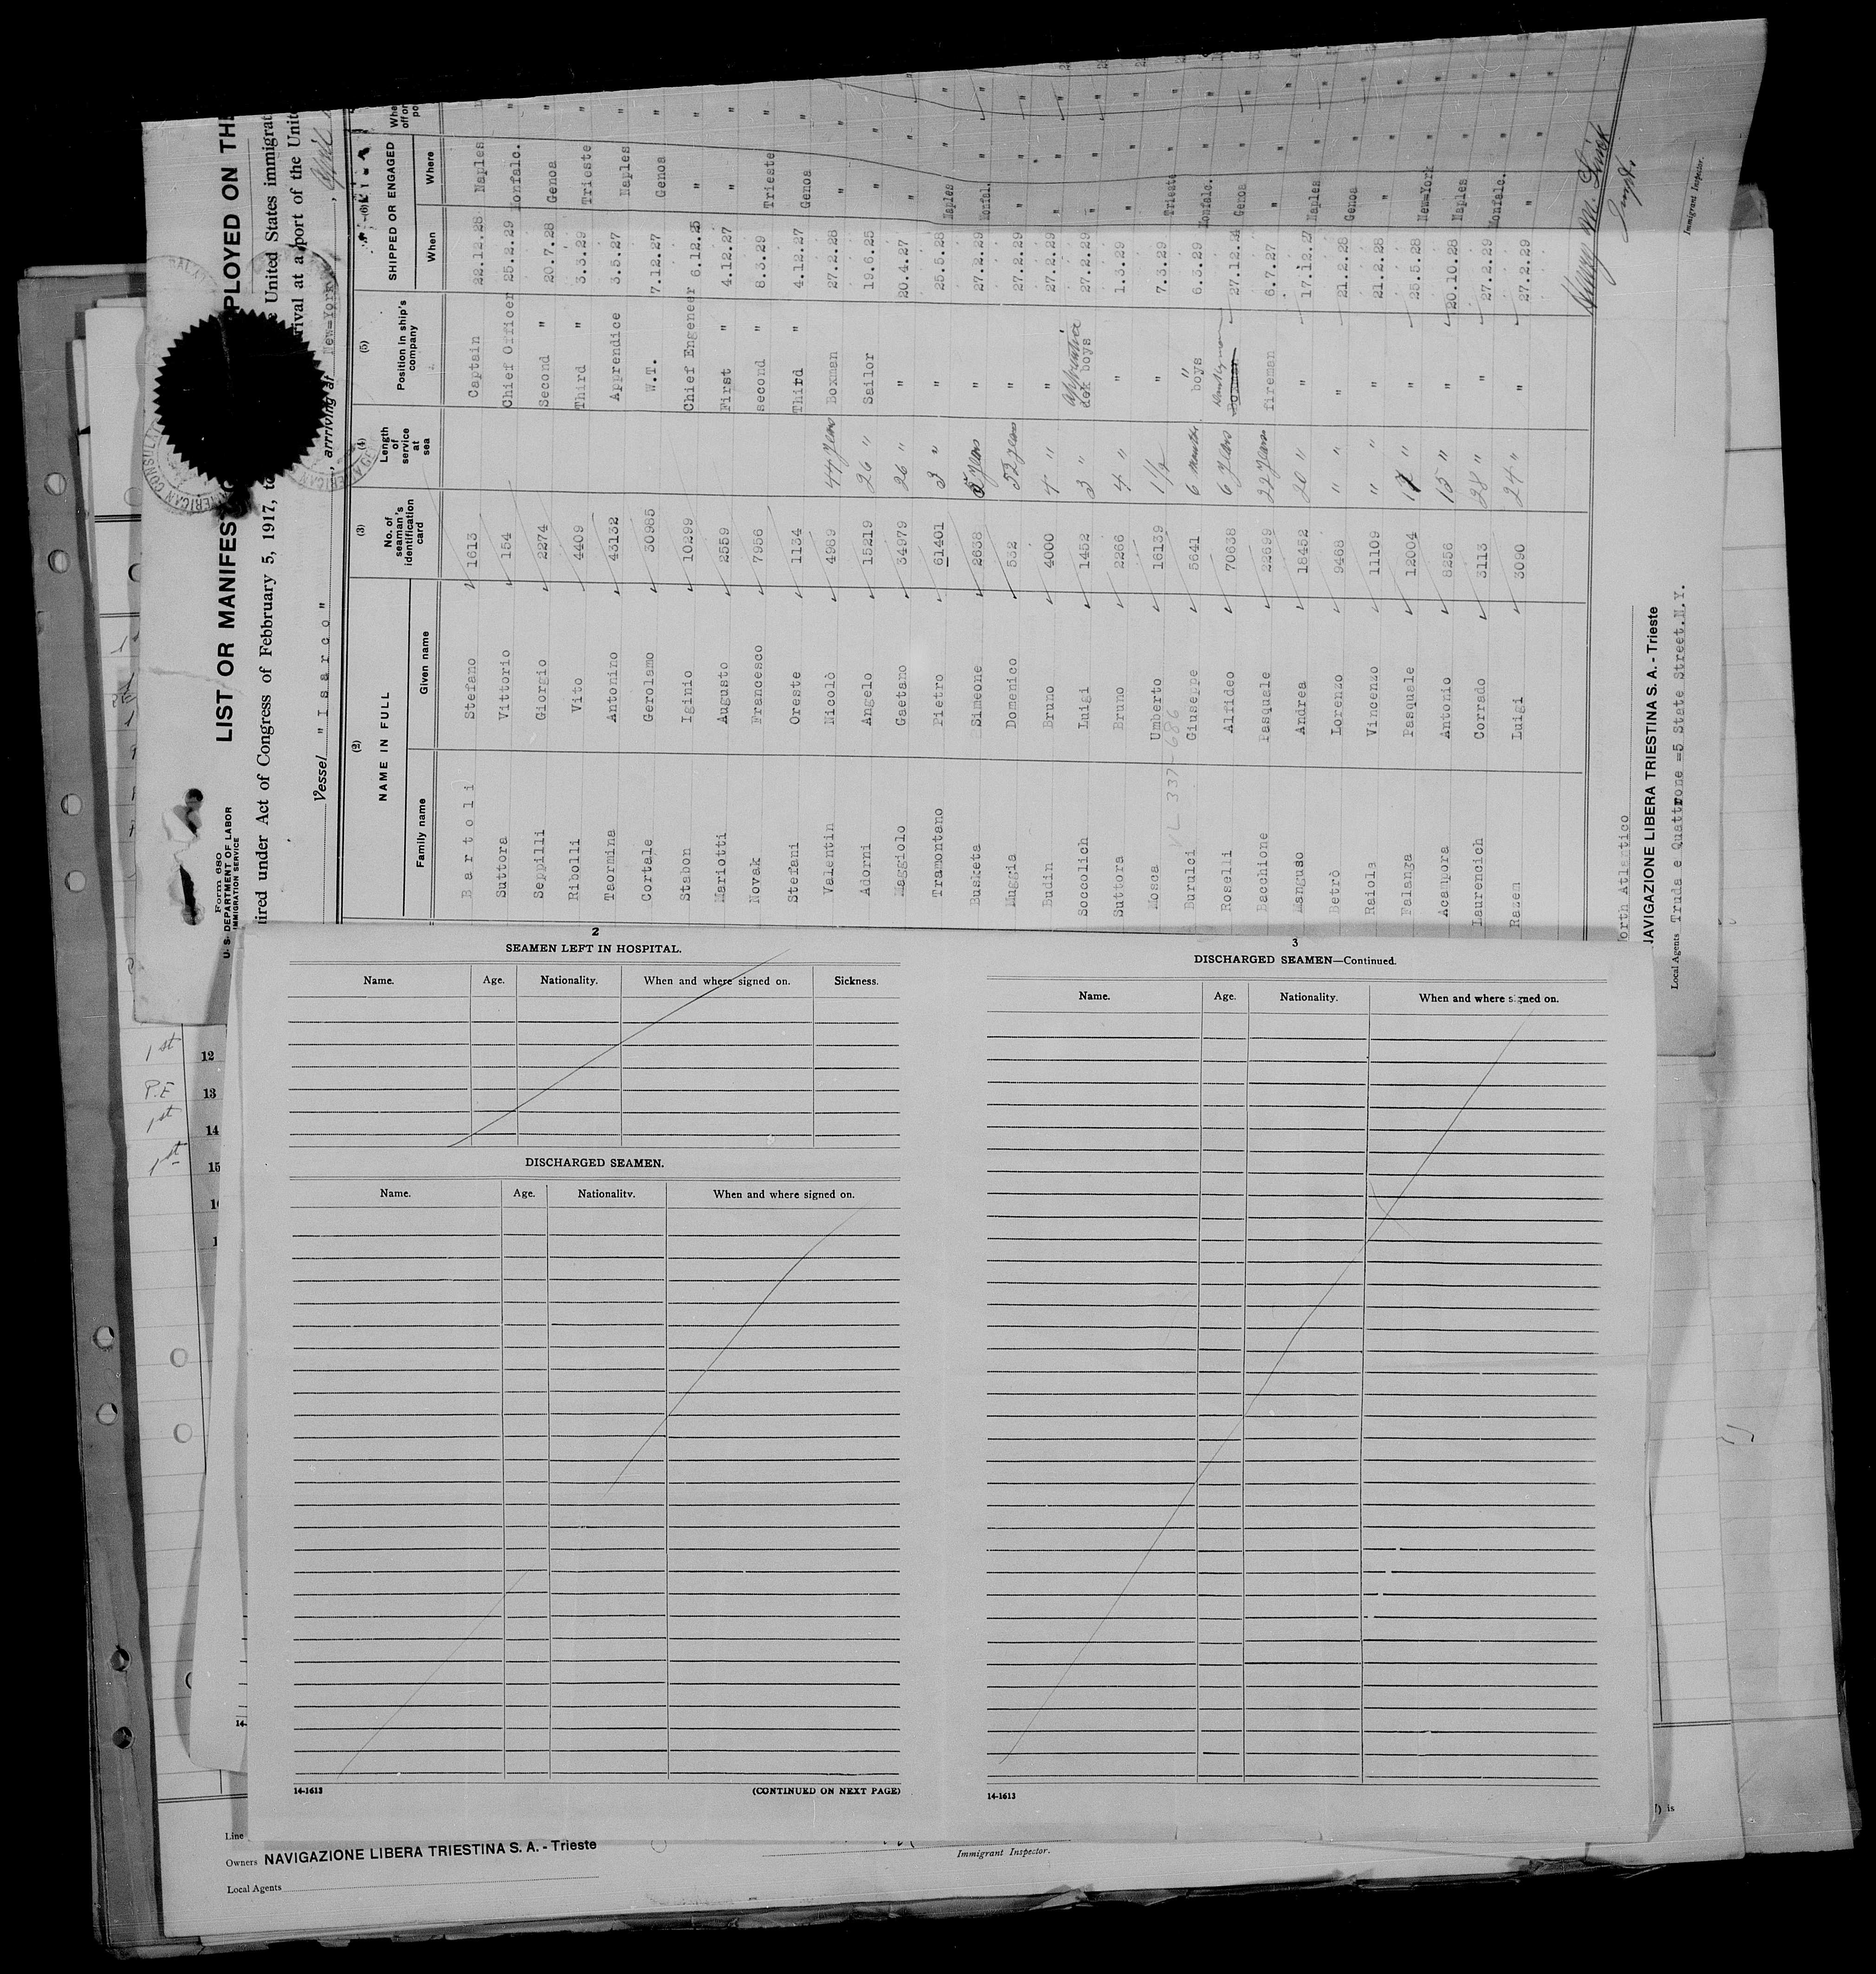 Form 680
U. S. DEPARTMENT OF LABOR
IMMIGRATION SERVICE
LIST OR MANIFES PLOYED ON THE
ired under Act of Congress of Febbruary 5, 1917, to United States immigrat
rival at a port of the Unite
Vessel " I s a r c o " , arriving at New=York , April
(2) (3) (4) (5)
NAME IN FULL No. of seaman's identification card Length of service at sea Position in ship's company SHIPPED OR ENGAGED
Family name Given name When Where
B a r t o l i Stefano 1613 Captain 22.12.28 Naples
Suttora Vittorio 154 Chief Officer 25.2.29 Monfalc.
Seppilli Giorgio 2274 Second " 20.7.28 Genoa "
Ribolli Vito 4409 Third " 3.3.29 Trieste "
Taormina Antonino 43132 Apprendice 3.5.27 Naples "
Cortale Gerolamo 30985 W.T. 7.12.27 Genoa "
Stabon Iginio 10299 Chief Engeneer 6.12.25 " "
Mariotti Augusto 2559 First " 4.12.27 " "
Novak Francesco 7956 second " 8.3.29 Trieste "
Stefani Oreste 1134 Third " 4.12.27 Genoa "
Valentin Nicolò 4989 44 years Boxman 27.2.28 " "
Adorni Angelo 15219 26 " Sailor 19.6.25 " "
Maggiolo Gaetano 34979 26 " " 20.4.27 " "
Tramontano Pietro 61401 3 " " 25.5.28 Naples "
Busketa Simeone 2638 5 years " 27.2.29 Monfal. "
Muggia Domenico 532 32 years " 27.2.29 " "
Budin Bruno 4000 4 " " 27.2.29 " "
Soccolich Luigi 1452 3 " apprentice boys 27.2.29 " "
Suttora Bruno 2266 4 " " 1.3.29 " "
Mosca Umberto 16139 1 1/2 " 7.3.29 Trieste "
VL 337-686
Burulci Giuseppe 5641 6 months " boys 6.3.29 Monfalc. "
Roselli Alfideo 70638 6 years Boxman 27.12.24 Genoa "
Bacchione Pasquale 22699 22 years fireman 6.7.27 " "
Manguso Andrea 18452 20 " " 17.12.27 Naples "
Betrò Lorenzo 9468 " " " 21.2.28 Genoa "
Raiola Vincenzo 11109 " " " 21.2.28 " "
Falanga Pasquale 12004 12 " " 25.5.28 New=York "
Acampora Antonio 8256 15 " " 20.10.28 Naples "
Laurencich Corrado 3113 28 " " 27.2.29 Monfalc. "
Razem Luigi 3090 24 " " 27.2.29 " "
Immigrant Inspector.
orth Atlantico
NAVIGAZIONE LIBERA TRIESTINA S. A. - Trieste
Local Agents Truda e Quattrone =5 State Street.N.Y.
1st 12
P.E 13
1st 14
1st 15
2
SEAMEN LEFT IN HOSPITAL.
Name. Age. Nationality. When and where signed on. Sickness.
DISCHARGED SEAMEN.
Name. Age. Nationality. When and where signed on.
14-1613 (CONTINUED ON NEXT PAGE)
3
DISCHARGED SEAMEN—Continued.
Name. Age. Nationality. When and where signed on.
14-1613
Line
Owners NAVIGAZIONE LIBERA TRIESTINA S. A. - Trieste
Local Agents
Immigrant Inspector.
is